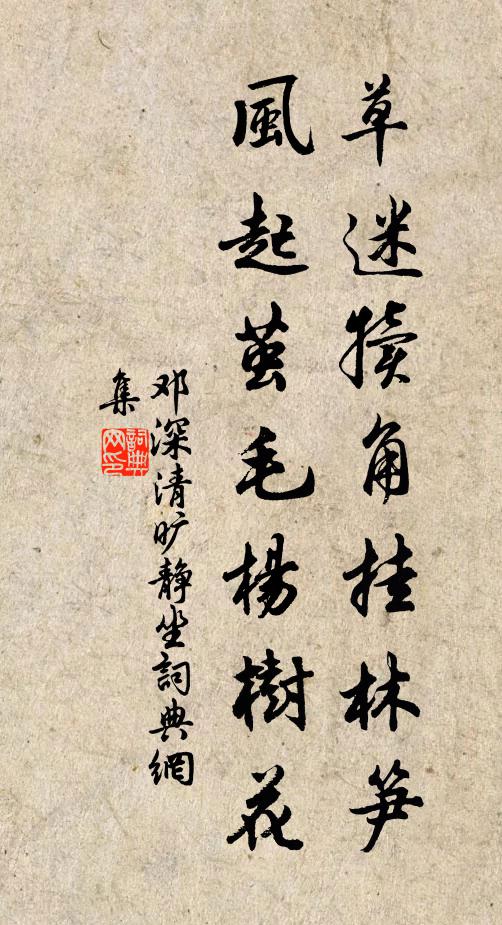 草迷犊角挂林笋
風起茧毛楊樹花
邓深清旷静坐詞典網
集
詞典
网印